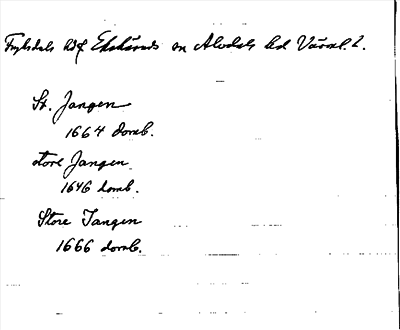 Fryksdals hd Ekshärads sn Älvdals hd Värml. l.
St. Jangen
1664 domb.
store Jangen
1646 domb.
Store Tangen
1666 domb.